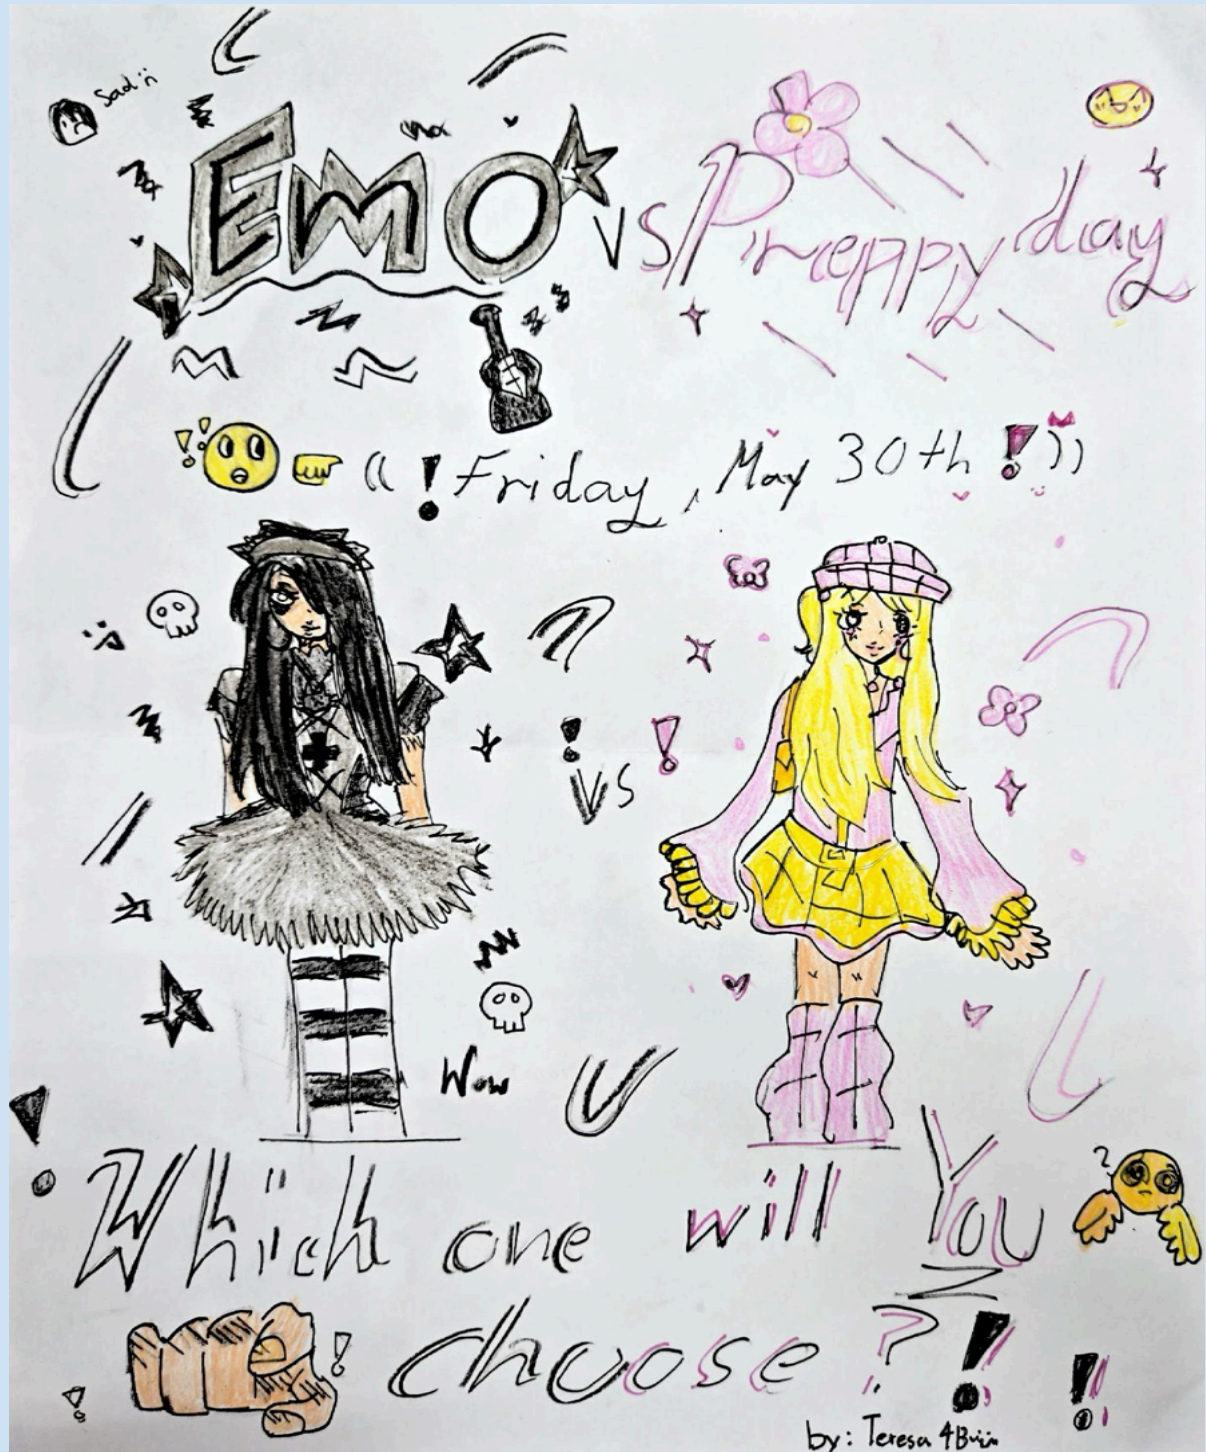 Sad :(
Emo vs Preppy day
(( ! Friday, May 30th ! ))
vs
Wow
Which one will You
choose ? ! !
by: Teresa